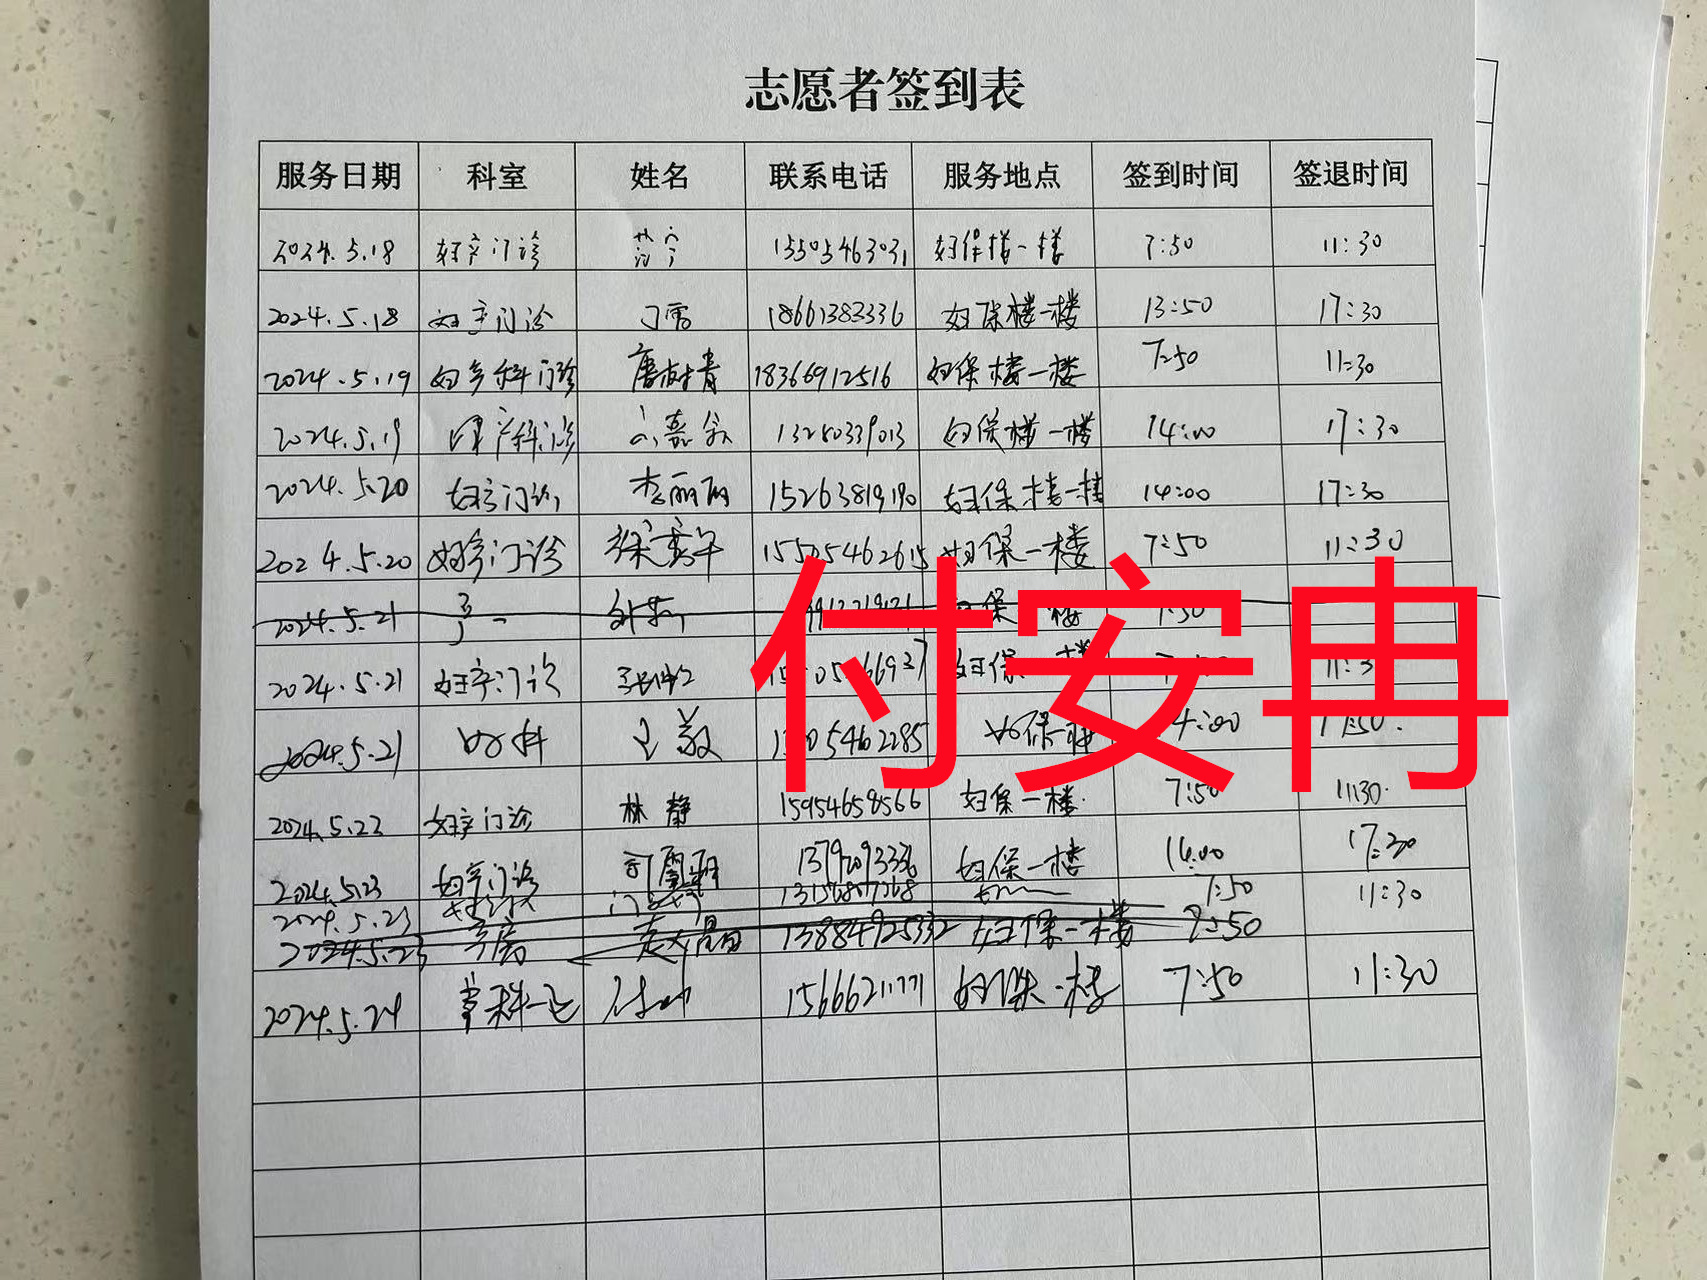 志愿者签到表
服务日期 科室 姓名 联系电话 服务地点 签到时间 签退时间
2024.5.18 妇产门诊 15505463031 妇保楼一楼 7:50 11:30
2024.5.18 妇产门诊 丁雪 18661383336 妇保楼一楼 13:50 17:30
2024.5.19 妇产科门诊 唐树青 18366912516 妇保楼一楼 7:50 11:30
2024.5.19 13280339013 妇保楼一楼 14:00 17:30
2024.5.20 妇产门诊 李丽丽 15263819190 妇保楼一楼 14:00 17:30
2024.5.20 妇产门诊 15505462615 妇保一楼 7:50 11:30
2024.5.21 妇保一楼 7:50
2024.5.21 妇产门诊 妇保 11:3
2024.5.21 妇科 王敏 妇保一楼 14:00 17:30.
2024.5.22 妇产门诊 林静 15954658566 妇保一楼. 7:50 11:30.
2024.5.23 妇产门诊 13792093336 妇保一楼 14:00 17:30
2024.5.23 13156807268 7:50 11:30
2024.5.23 产房 赵晶 13884925332 妇保一楼 7:50
2024.5.24 15666211771 妇保一楼 7:50 11:30
付安冉